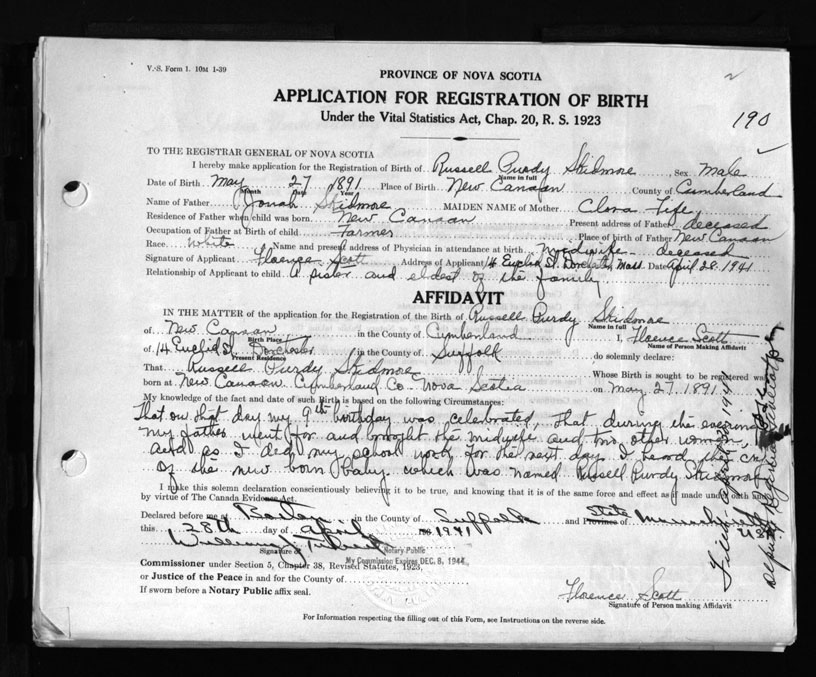 V.-S. Form 1. 10M 1-39
PROVINCE OF NOVA SCOTIA
APPLICATION FOR REGISTRATION OF BIRTH
Under the Vital Statistics Act, Chap. 20, R. S. 1923
190
TO THE REGISTRAR GENERAL OF NOVA SCOTIA
I hereby make application for the Registration of Birth of Russell Purdy Skidmore, Sex Male
Name in full
Date of Birth May 27 1891 Place of Birth New Canaan County of Cumberland
Month Day Year
Name of Father Jonah Skidmore MAIDEN NAME of Mother Clora Fife
Residence of Father when child was born New Canaan Present address of Father deceased
Occupation of Father at Birth of child Farmer Place of birth of Father New Canaan
Race White Name and present address of Physician in attendance at birth Midwife deceased
Signature of Applicant Florence Scott Address of Applicant 14 Euclid St. Dorchester, Mass Date April 28, 1941
Relationship of Applicant to child A sister and eldest of the family
AFFIDAVIT
IN THE MATTER of the application for the Registration of the Birth of Russell Purdy Skidmore
Name in full
of New Canaan in the County of Cumberland I, Florence Scott
Birth Place Name of Person Making Affidavit
of 14 Euclid St. Dorchester in the County of Suffolk do solemnly declare:
Present Residence
That Russell Purdy Skidmore Whose Birth is sought to be registered was
born at New Canaan Cumberland Co. Nova Scotia on May 27 1891
My knowledge of the fact and date of such Birth is based on the following Circumstances:
That on that day my 9th birthday was celebrated, That during the evening
my father went for and brought the midwife and two other women,
and as I did my school work for the next day I heard the cry
of the new born baby which was named Russell Purdy Skidmore
I make this solemn declaration conscientiously believing it to be true, and knowing that it is of the same force and effect as if made under oath and
by virtue of The Canada Evidence Act.
Declared before me at Boston in the County of Suffolk and Province of State Massachusetts
USA
this 28th day of April 1941
William J.
Signature of Notary Public
My Commission Expires DEC. 8, 1944
Commissioner under Section 5, Chapter 38, Revised Statutes, 1923,
or Justice of the Peace in and for the County of
If sworn before a Notary Public affix seal.
Florence Scott
Signature of Person making Affidavit
For Information respecting the filling out of this Form, see Instructions on the reverse side.
Filed 1941
Deputy Registrar